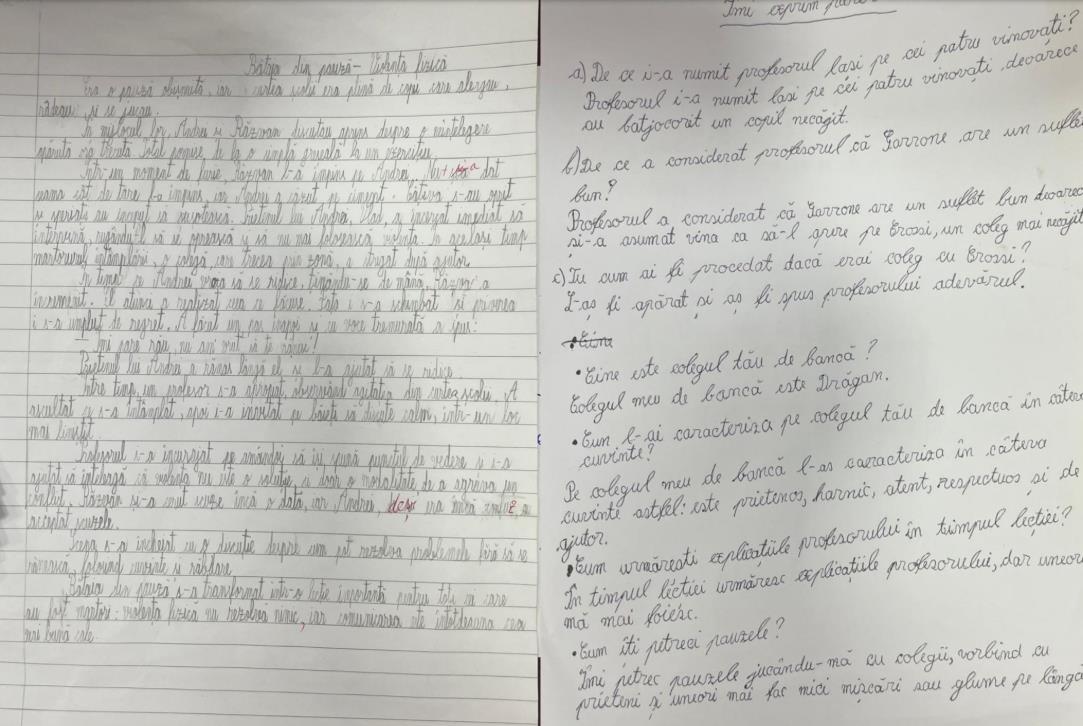 Bătaia din pauză - Violența fizică
Era o pauză obișnuită, iar curtea școlii era plină de copii care alergau,
râdeau și se jucau.
În mijlocul lor, Andrei și Răzvan discutau aprins despre o neînțelegere
apărută ora trecută. Totul pornise de la o simplă greșeală la un exercițiu.
Într-un moment de furie, Răzvan l-a împins pe Andrei. dat
seama cât de tare l-a împins, iar Andrei a căzut pe ciment. Câțiva s-au oprit
și speriați au început să șușotească. Prietenul lui Andrei, Vlad, a încercat imediat să
intervină, rugându-l să se oprească și să nu mai folosească violența. În același timp
martorul întâmplării, o colegă care trecea prin zonă, a strigat după ajutor.
În timp ce Andrei să se ridice, ținându-se de mână, Răzvan a
încremenit. El atunci a realizat ce făcuse. Fața i s-a schimbat și privirea
i s-a umplut de regret. A făcut un pas înapoi și cu voce tremurată a spus:
- Îmi pare rău, nu am vrut să te rănesc!
Prietenul lui Andrei a rămas lângă el și l-a ajutat să se ridice.
Între timp, un profesor s-a apropiat, observând agitația din curtea școlii. A
ascultat ce s-a întâmplat, apoi i-a invitat pe băieți să discute calm, într-un loc
mai liniștit.
Profesorul i-a încurajat pe amândoi să își spună punctele de vedere și i-a
ajutat să înțeleagă că violența nu este o soluție, ci doar o modalitate de a agrava un
conflict. Răzvan și-a cerut scuze încă o dată, iar Andrei, deși era încă a
acceptat scuzele.
Scena s-a încheiat cu o discuție despre cum pot rezolva problemele fără să se
rănească, folosind cuvinte și răbdare.
Bătaia din pauză s-a transformat într-o lecție importantă pentru toți cei care
au fost martori: violența fizică nu rezolvă nimic, iar comunicarea este întotdeauna cea
mai bună cale.
Îmi exprim
a) De ce i-a numit profesorul lași pe cei patru vinovați?
Profesorul i-a numit lași pe cei patru vinovați deoarece
au batjocorit un copil necăjit.
b) De ce a considerat profesorul că Garrone are un suflet
bun?
Profesorul a considerat că Garrone are un suflet bun deoarece
și-a asumat vina ca să-l apere pe Crossi, un coleg mai necăjit
c) Tu cum ai fi procedat dacă erai coleg cu Crossi?
L-aș fi apărat și aș fi spus profesorului adevărul.
• Cine este colegul tău de bancă?
Colegul meu de bancă este Drăgan.
• Cum l-ai caracteriza pe colegul tău de bancă în câteva
cuvinte?
Pe colegul meu de bancă l-aș caracteriza în câteva
cuvinte astfel: este prietenos, harnic, atent, respectuos și de
ajutor.
• Cum urmărești explicațiile profesorului în timpul lecției?
În timpul lecției urmăresc explicațiile profesorului, dar uneori
mă mai foiesc.
• Cum îți petreci pauzele?
Îmi petrec pauzele jucându-mă cu colegii, vorbind cu
prieteni și uneori mai fac mici mișcări sau glume pe lângă